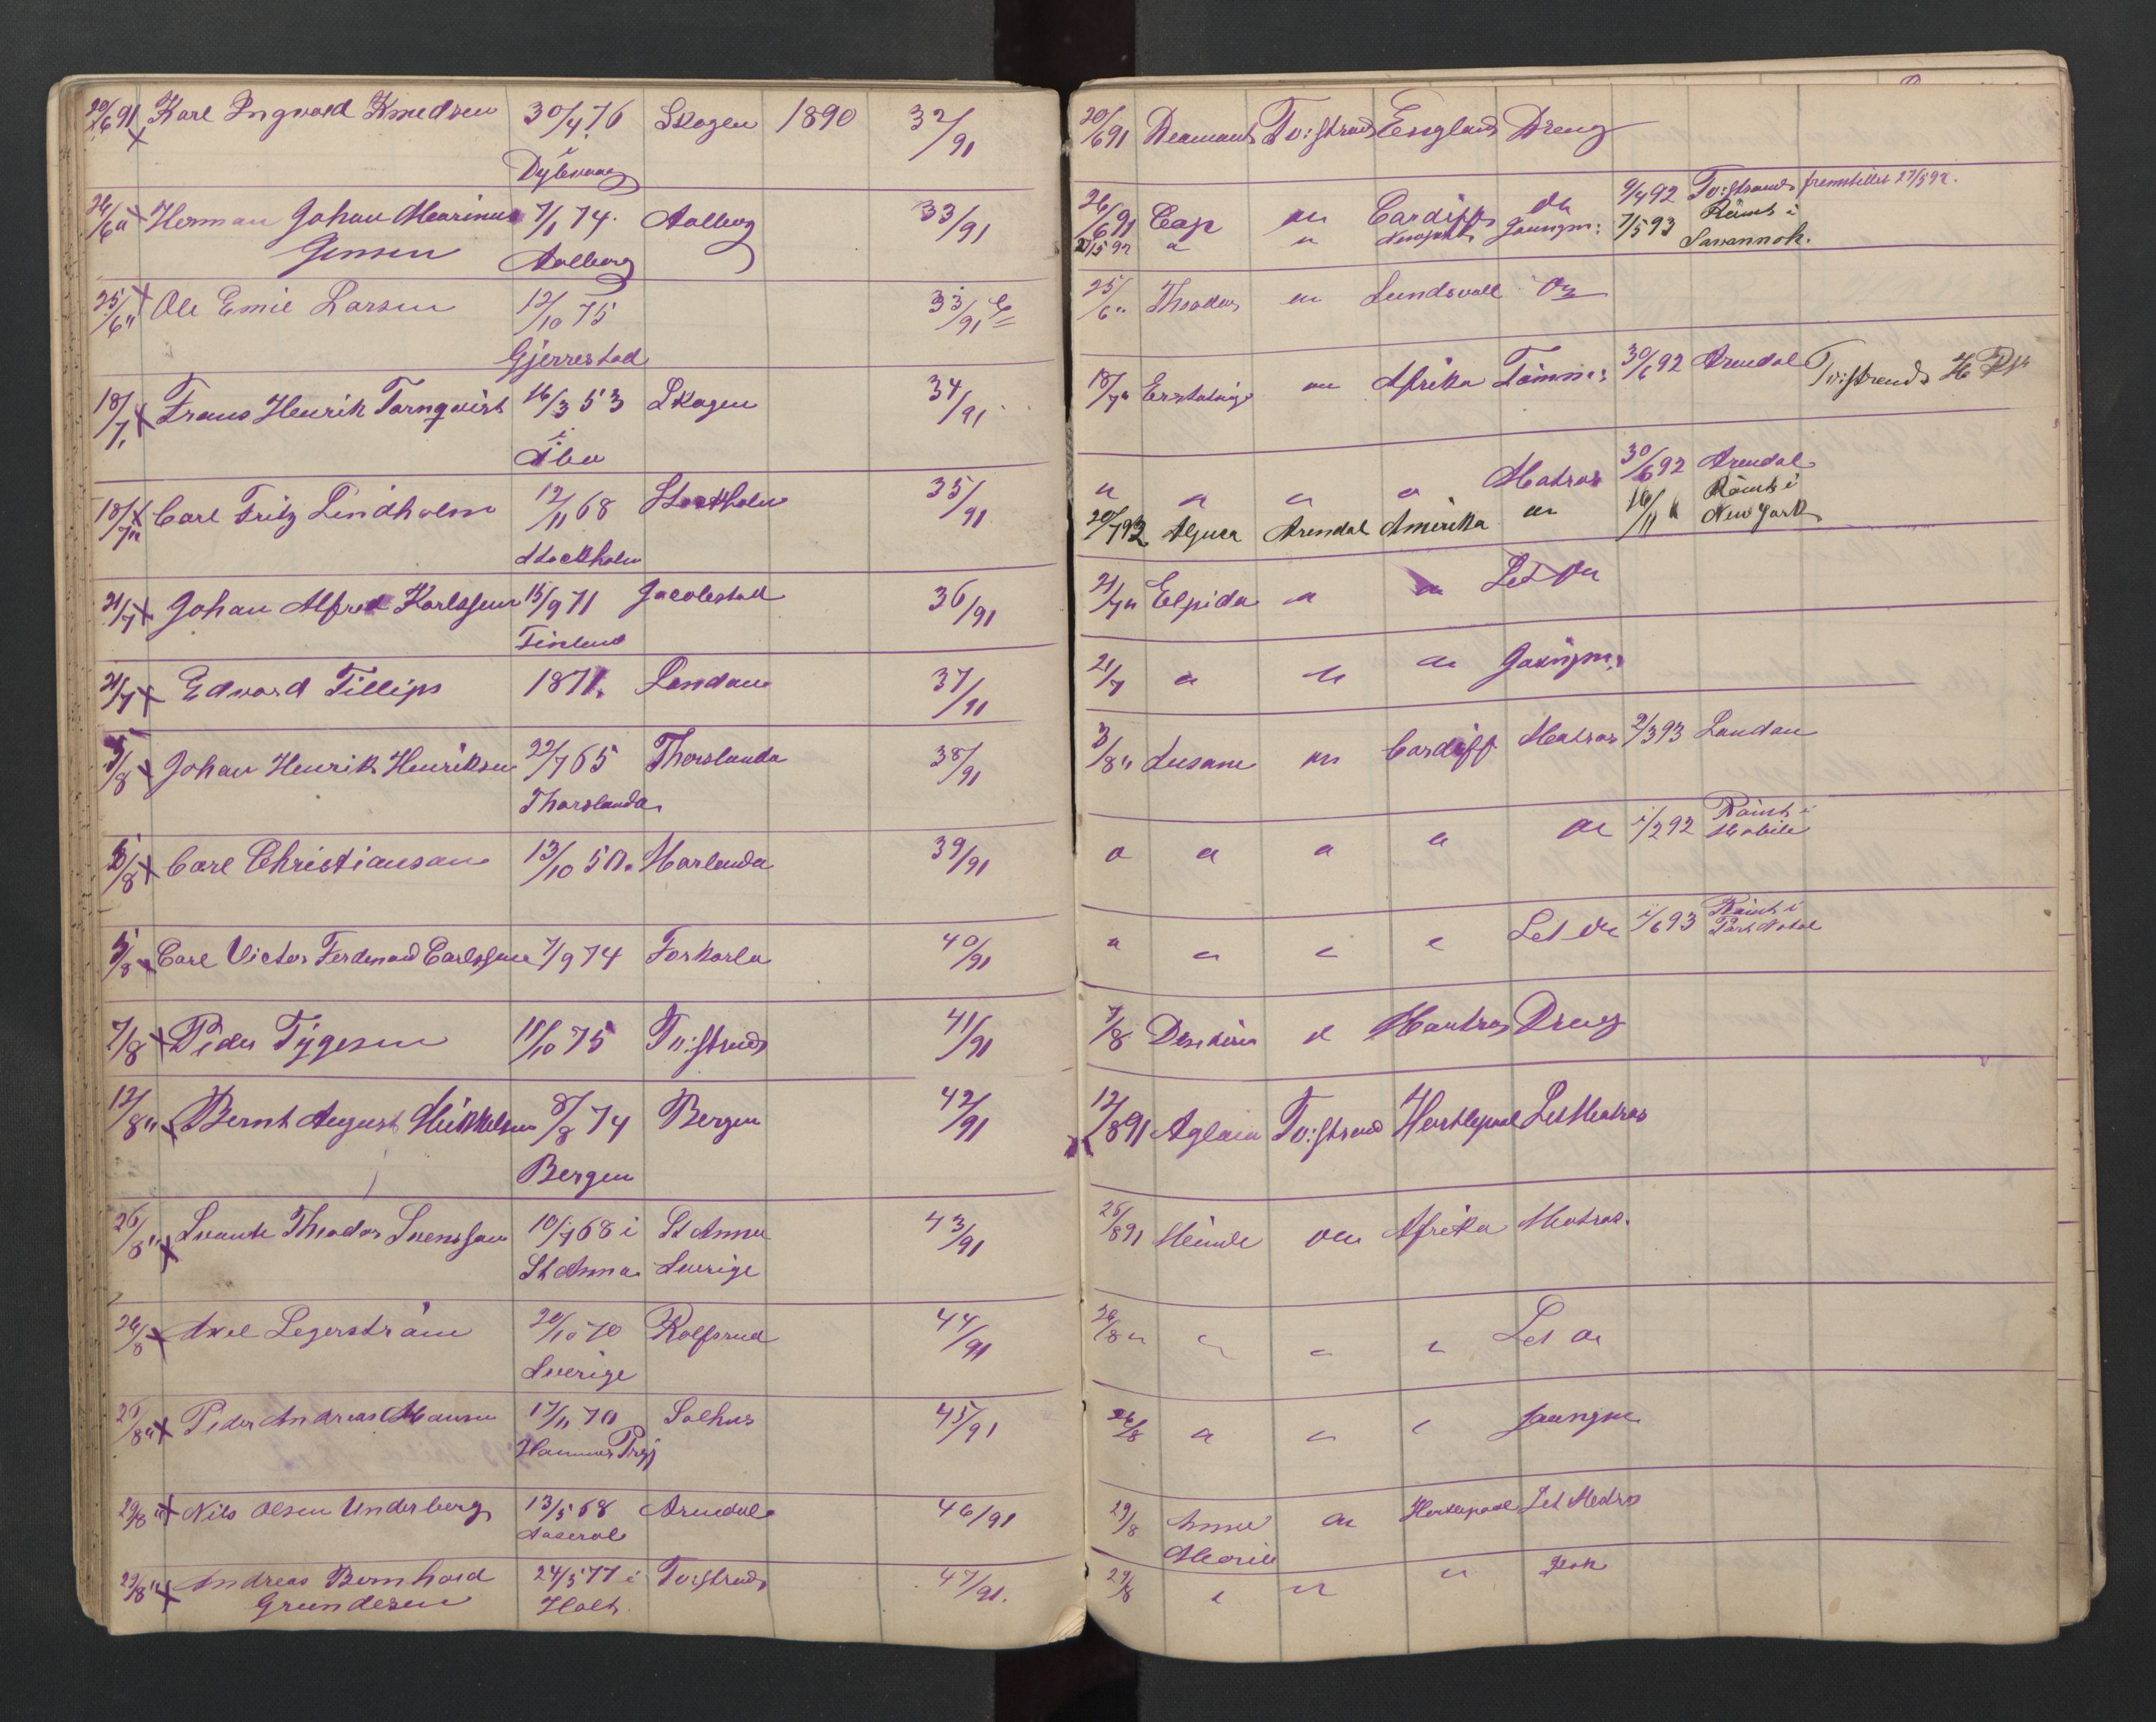 20/6 91 Karl Ingvald Knudsen 30/4 76 Skagen 1890 32/91
i
Dybvaag
26/6 " Herman Johan Marinus 7/1 74. Aalborg 33/91
Jensen Aalborg
25/6 " Ole Emil Larsen 12/10 75 33/91
Gjerrestad
18/7 " Frans Henrik Tornqvist 16/3 53 Skagen 34/91
i
Åbo
18/7 " Carl Fritz Lindholm 12/11 68 Stockholm 35/91
Stockholm
21/7 Johan Alfred Karlssen 15/9 71 Jacobstad 36/91
Finland
21/7 Edvard Fillips 1871. London 37/91
3/8 Johan Henrik Henriksen 22/7 65 Thorslanda 38/91
Thorslanda
3/8 Carl Christiansan 13/10 50. Harlanda 39/91
3/8 Carl Victor Ferdinand Carlssen 7/9 74 Forkarla 40/91
7/8 Peder Tygesen 11/10 75 Tv:strand 41/91
12/8 " Bernt August Mikkelsen 8/8 74 Bergen 42/91
Bergen
26/8 " Svante Theodor Svenssen 10/7 68 i St Anna 43/91
St Anna Sverige
26/8 Axel Legerström 20/10 70 Rolfsrud 44/91
Sverige
26/8 " Peder Andreas Hansen 17/11 70 Salhus 45/91
Hammer Prgj
29/8 " Nils Olsen Underberg 13/5 68 Arendal 46/91
Aaseral
29/8 " Andreas Bernhard 24/5 77 i Tvistrand 47/91.
Grundesen Holt.
20/6 91 Deamant Tv:strand England Dreng
26/6 91 Cap do Cardiff do 9/4 92 Tv:strand fremstillet 27/5 92.
27/5 92 " " Newport Jaungm: 7/5 93 Römt i
Savannah.
25/6 " Theodor do Sundsvall do
18/7 " Erstatning do Afrika Tömm: 30/6 92 Arendal Tv:strand
" " " " Matros 30/6 92 Arendal
20/7 92 Arendal Amerika do 16/11 " Römt i
New York
21/7 " Elpida " " Let do
21/7 " " do Jaungm:
3/8 " Susane do Cardiff Matros 2/3 93 London
" " " " do 1/2 92 Römt i
Mobile
" " " " Let do 1/6 93 Römt i
Port Natal
7/8 " Dreng
12/8 91 Aglaia Tv:strand Hartlepool Let Matros
26/8 91 do Afrika Matros.
26/8 " " " " Let do
26/8 " " " Jaungm
29/8 Anna do Hartlepool Let Matros
Marie
29/8 " " " Kok